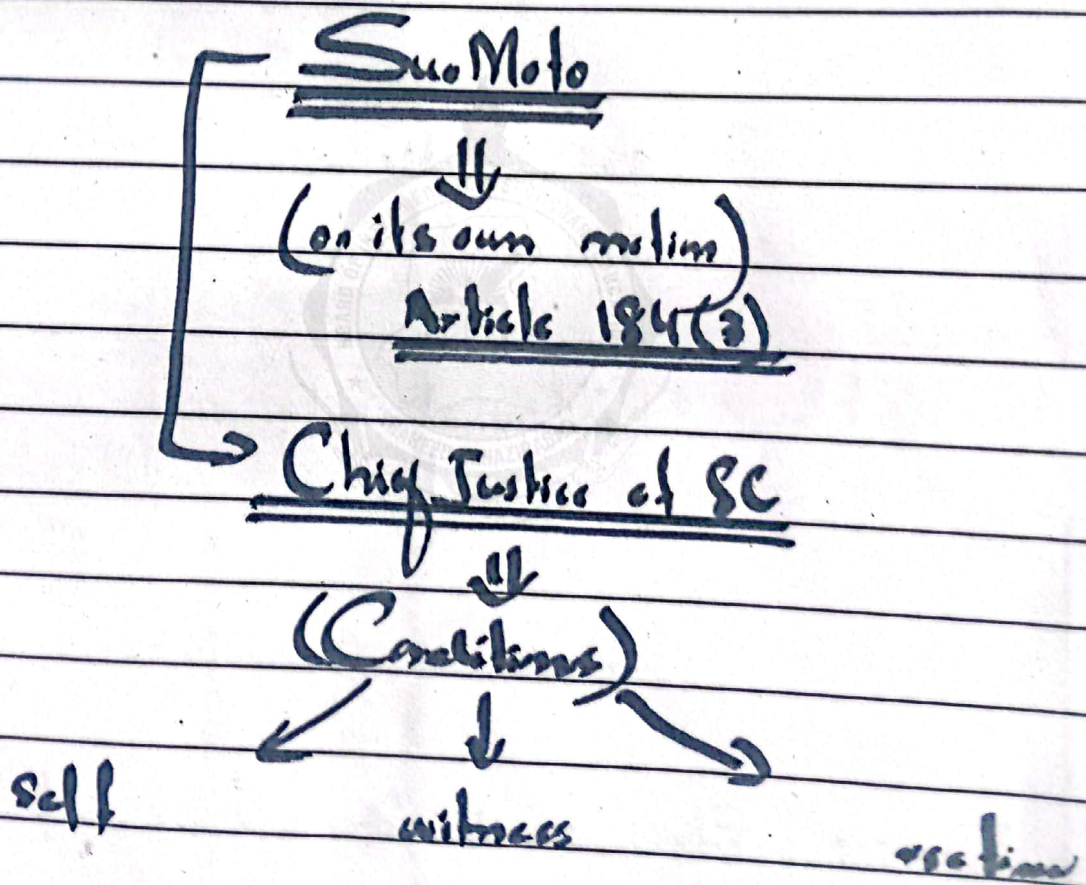 Suo Moto
(on its own motion)
Article 184(3)
Chief Justice of SC
(Conditions)
Self witness